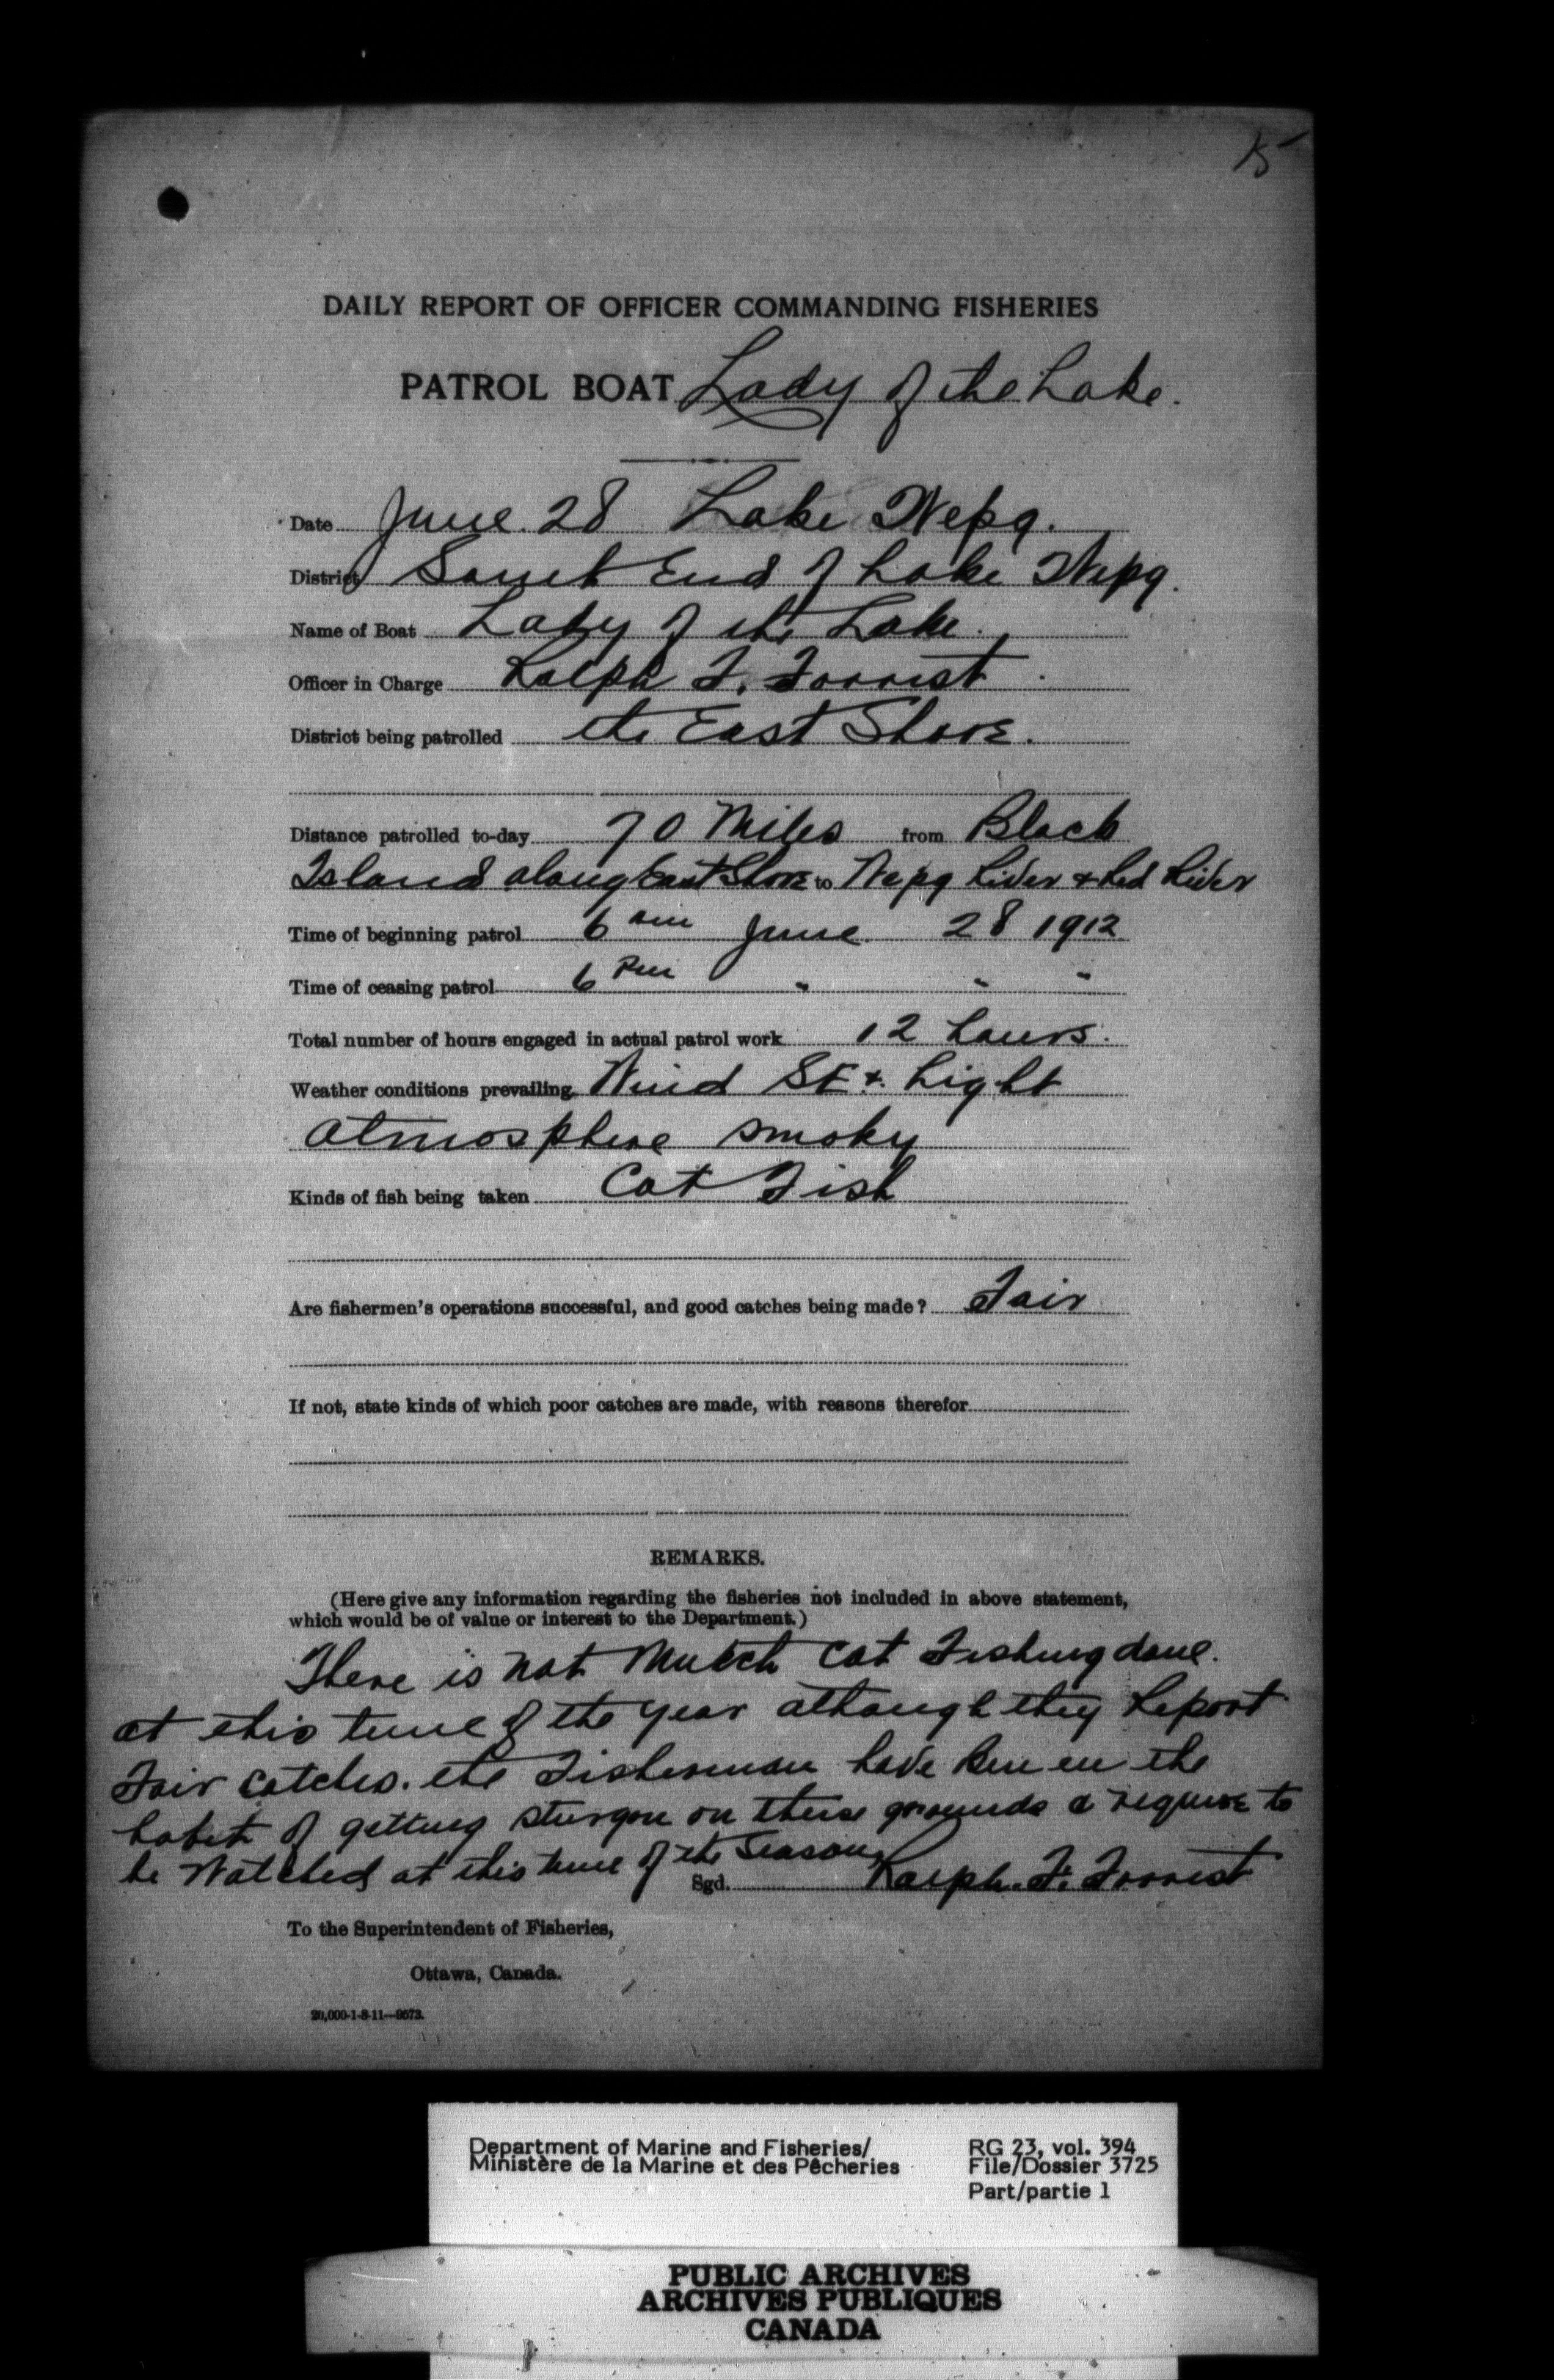 15
DAILY REPORT OF OFFICER COMMANDING FISHERIES
PATROL BOAT Lady of the Lake.
Date June 28 Lake Wepg.
District South End of Lake Wepg.
Name of Boat Lady of the Lake.
Officer in Charge Ralph F. Forrist.
District being patrolled the East Shore.
Distance patrolled to-day 70 Miles from Black
Island along East Shore to Wepg River & Red River
Time of beginning patrol 6 am June 28 1912
Time of ceasing patrol 6 Pm " " "
Total number of hours engaged in actual patrol work 12 hours.
Weather conditions prevailing Wind SE & Light
atmosphere smoky
Kinds of fish being taken Cat Fish
Are fishermen's operations successful, and good catches being made? Fair
If not, state kinds of which poor catches are made, with reasons therefor
REMARKS.
(Here give any information regarding the fisheries not included in above statement,
which would be of value or interest to the Department.)
There is not Mutch Cat Fishing done.
at this time of the year although they Report
Fair catches. the Fisherman have Ben en the
habit of getting sturgon on these grounds & require to
be Watched at this time of the Season
Sgd. Ralph. F. Forrist
To the Superintendent of Fisheries,
Ottawa, Canada.
20,000-1-8-11—9573.
Department of Marine and Fisheries/ RG 23, vol. 394
Ministère de la Marine et des Pêcheries File/Dossier 3725
Part/partie 1
PUBLIC ARCHIVES
ARCHIVES PUBLIQUES
CANADA